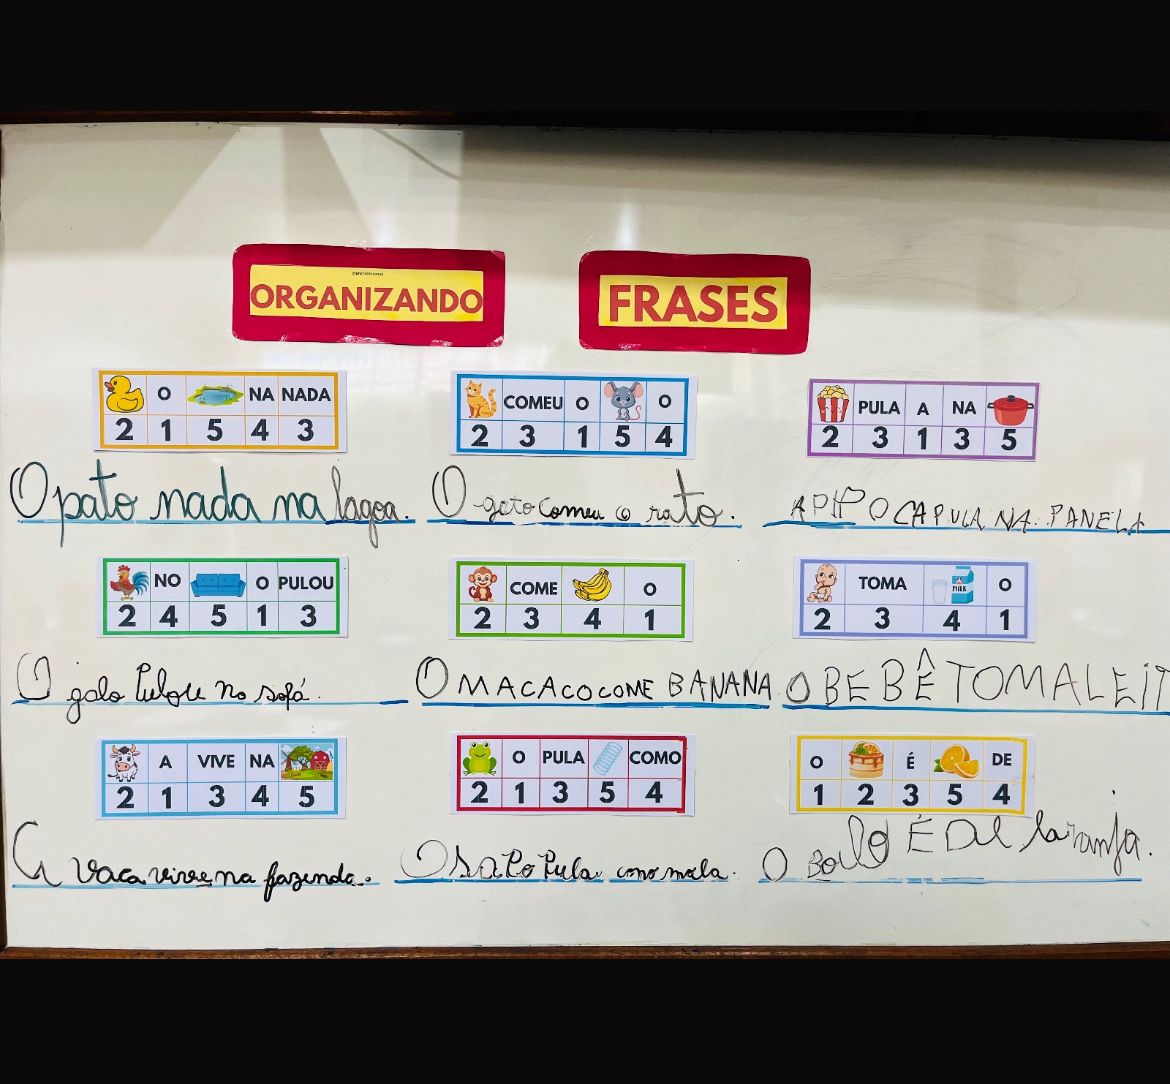 ORGANIZANDO FRASES
O NA NADA
2 1 5 4 3
COMEU O O
2 3 1 5 4
PULA A NA
2 3 1 3 5
O pato nada na lagoa.
O gato comeu o rato.
A PIPOCA PULA NA PANELA
NO O PULOU
2 4 5 1 3
COME O
2 3 4 1
TOMA MILK O
2 3 4 1
O galo Pulou no sofá.
O MACACO COME BANANA
O BEBÊ TOMA LEIT
A VIVE NA
2 1 3 4 5
O PULA COMO
2 1 3 5 4
O É DE
1 2 3 5 4
A vaca vive na fazenda.
O saPo Pula como mola.
O Bolo É DE laranja.